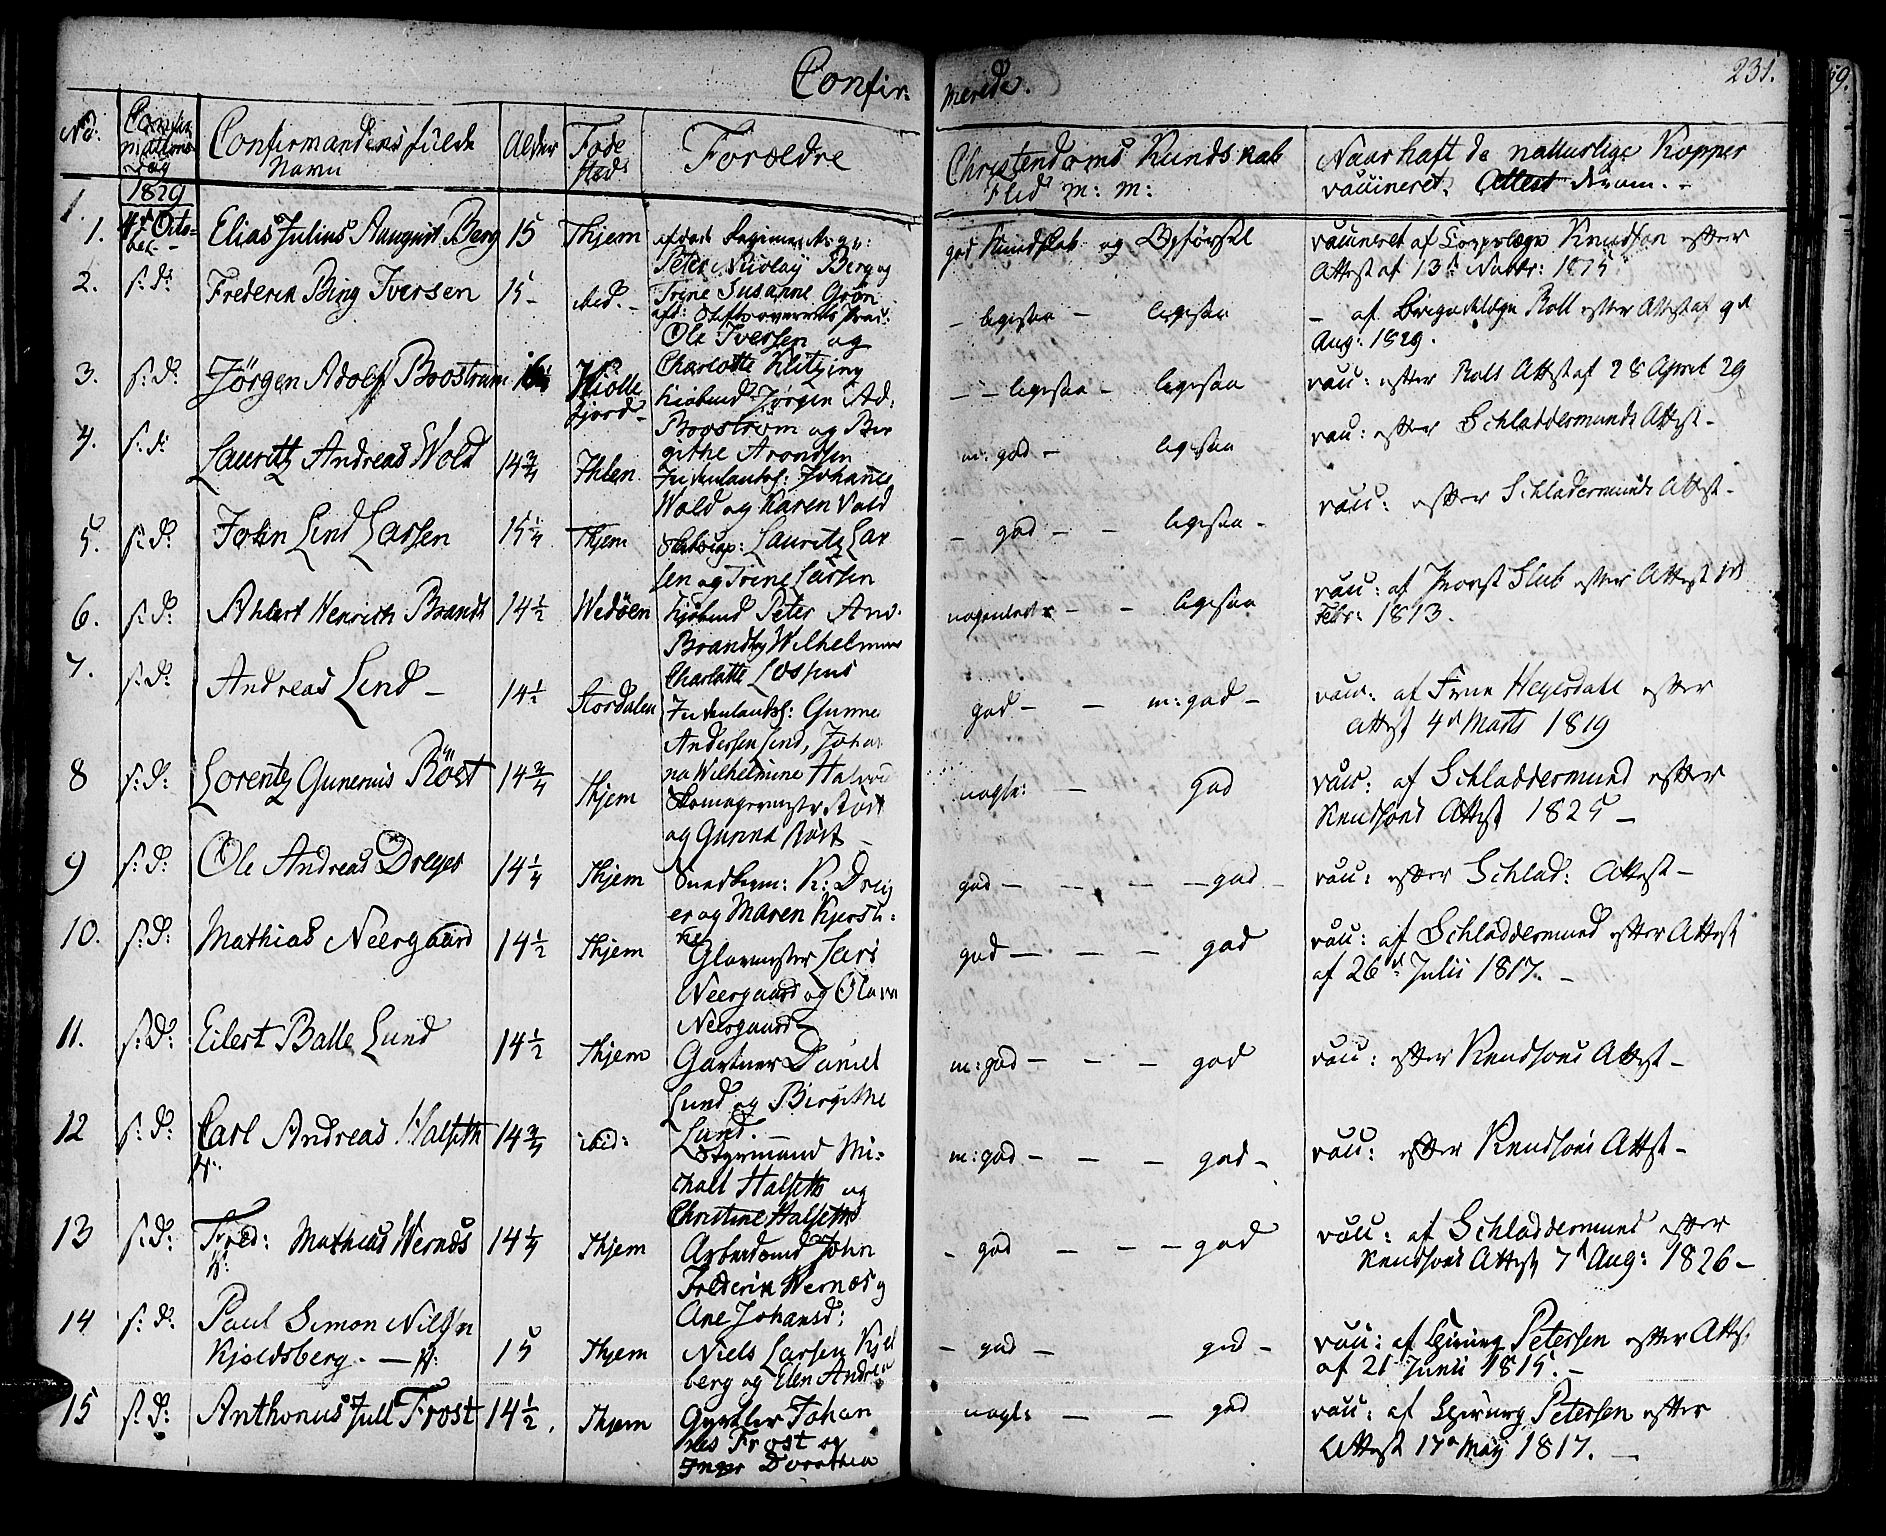 Confir-
merede.
231.
No.
Confir-
mations
Dag
Confirmandens fulde
Navn
Alder
Føde
Sted
Forældre
Christendoms Kundskab
Flid m: m:
Naar haft de naturlige Kopper
vaccineret. Attest derom. -
1829
1.
4de Octo-
ber -
Elias Julius Auugust Berg
15
Thjem
Peter Nicolay Berg og
Trine Susanne Grøn
god Kundskab og Opførsel
vaccineret af Knudson efter
Attest af 13d Novbr: 1815
2.
s: d:
Frederik Bing Iversen
15-
ibid. -
Ole Iversen og
Charlotte Klitzing
- ligesaa - ligesaa
- af Brigadelæge Roll efter Attest af 9d
Aug: 1829.
3.
s: d:
Jørgen Adolf Boostrøm
Kiolle
fjord
Kiøbmd Jørgen Ad.
Boostrøm og Bir
githe Arondsen
- - ligesaa - ligesaa
vac: efter Rolls Attest af 28 April 29
4.
s: d:
Lauritz Andreas Wold
14 3/4
Ihlen
Johannes
Wold og Karen Vold
m: god - ligesaa
vac: efter Schladdermunds Attest -
5.
s: d:
John Lind Larsen
15 1/4
Thjem
Lauritz Lar
sen og Trine Larsen
- god - - ligesaa -
vac: efter Schladermunds Attest -
6.
s: d:
Ahlert Henrich Brandt
14 1/2
Wedøen
Kjøbmd Peter And.
Brandt og Wilhelmine
Charlotte
- - ligesaa
vac: af Provst Stub efter Attest
Febr: 1813.
7.
s: d:
Andreas Lind -
14 1/2
Stordalen
Gunner
Andersen Lind, Johan
na Wilhelmine
god - - m: god -
vac: af efter
Attest 4d Marts 1819
8
s: d:
Lorentz Gunerius Röst
14 3/4
Thjem
Skomagermester Röst
og Gunna Röst -
nogl: - god
vac: af Schladdermund efter
Knudsons Attest 1825 -
9
s: d:
Ole Andreas Dreyer
14 1/4
Thjem
Snedkerm: K: Drey
er og Maren Kjersti-
ne
god - - - - god -
vac: efter Schlad: Attest -
10.
s: d:
Mathias Neergaard
14 1/2
Thjem
Glarmester Lars
Neergaard og Olava
Neergaard
god - - - god
vac: af Schladdermund efter Attest
af 26d Julii 1817. -
11.
s: d:
Eilert Balle Lund
14 1/2
Thjem
Gartner Daniel
Lund og Birgithe
Lund. -
m: god - - - god
vac: efter Knudsons Attest -
12
s: d:
Carl Andreas Halseth
14 3/4
ibid:
Styrmand Mi-
chael Halseth og
Christine Halseth
m: god - - - god -
vac: efter Knudsons Attest -
13
s: d:
Fred: Mathias Wernes
14 1/4
Thjem
Arbeidsmd John
Frederik Wernes og
Ane Johansd:
- god - - - god
vac: af Schladdermund efter
Knudsons Attest 7d Aug: 1826 -
14
s: d:
Paul Simon Nilsen
Kjoldsberg. -
15
Thjem
Niels Larsen Kjol
berg og Elen Andrea
- god - god -
vac: af Chirurg Petersen efter Attest
af 21 Junii 1815. -
15
s: d:
Anthonus Jull Frost
14 1/2.
Thjem
Gjørtler Johan
nes Frost og
Inger Dorothea
nogl: - - god
vac: af Chirurg Petersen efter
Attest 17d May 1817. -